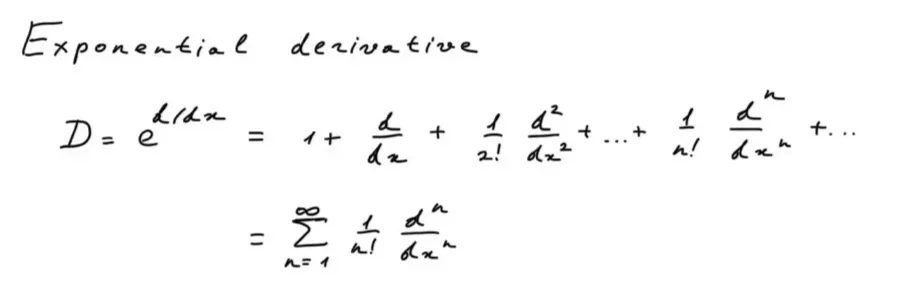 Exponential derivative
D = e^{d/dx} = 1 + \frac{d}{dx} + \frac{1}{2!} \frac{d^2}{dx^2} + ... + \frac{1}{n!} \frac{d^n}{dx^n} + ...
= \sum_{n=1}^{\infty} \frac{1}{n!} \frac{d^n}{dx^n}